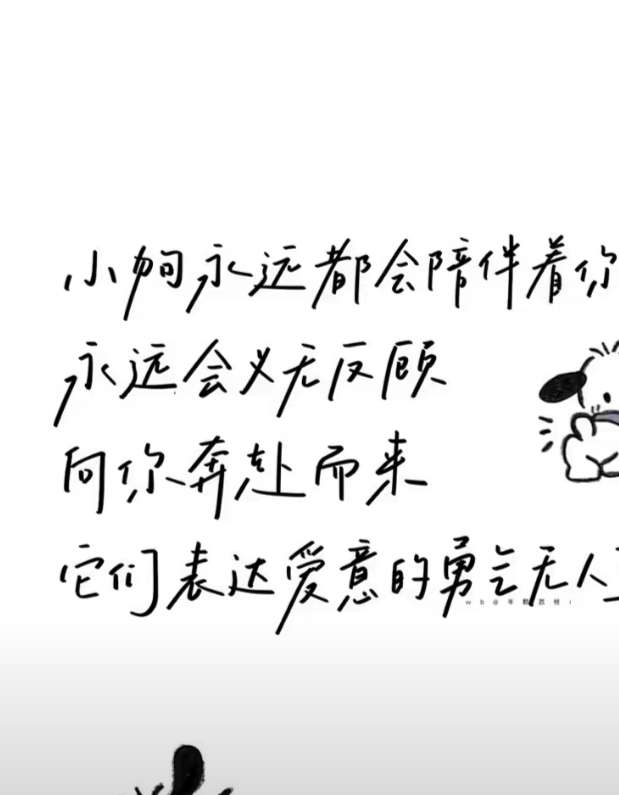 小狗永远都会陪伴着你
永远会义无反顾
向你奔赴而来
它们表达爱意的勇气无人